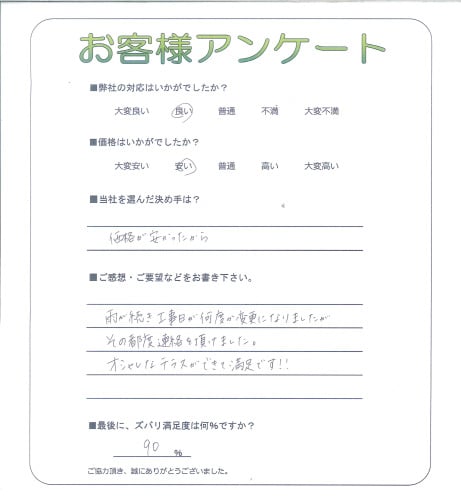 お客様アンケート
■弊社の対応はいかがでしたか？
大変良い 良い 普通 不満 大変不満
■価格はいかがでしたか？
大変安い 安い 普通 高い 大変高い
■当社を選んだ決め手は？
価格が安かったから
■ご感想・ご要望などをお書き下さい。
雨が続き工事日が何度か変更になりましたが
その都度連絡を頂けました。
オシャレなテラスができて満足です!!
■最後に、ズバリ満足度は何%ですか？
90 %
ご協力頂き、誠にありがとうございました。